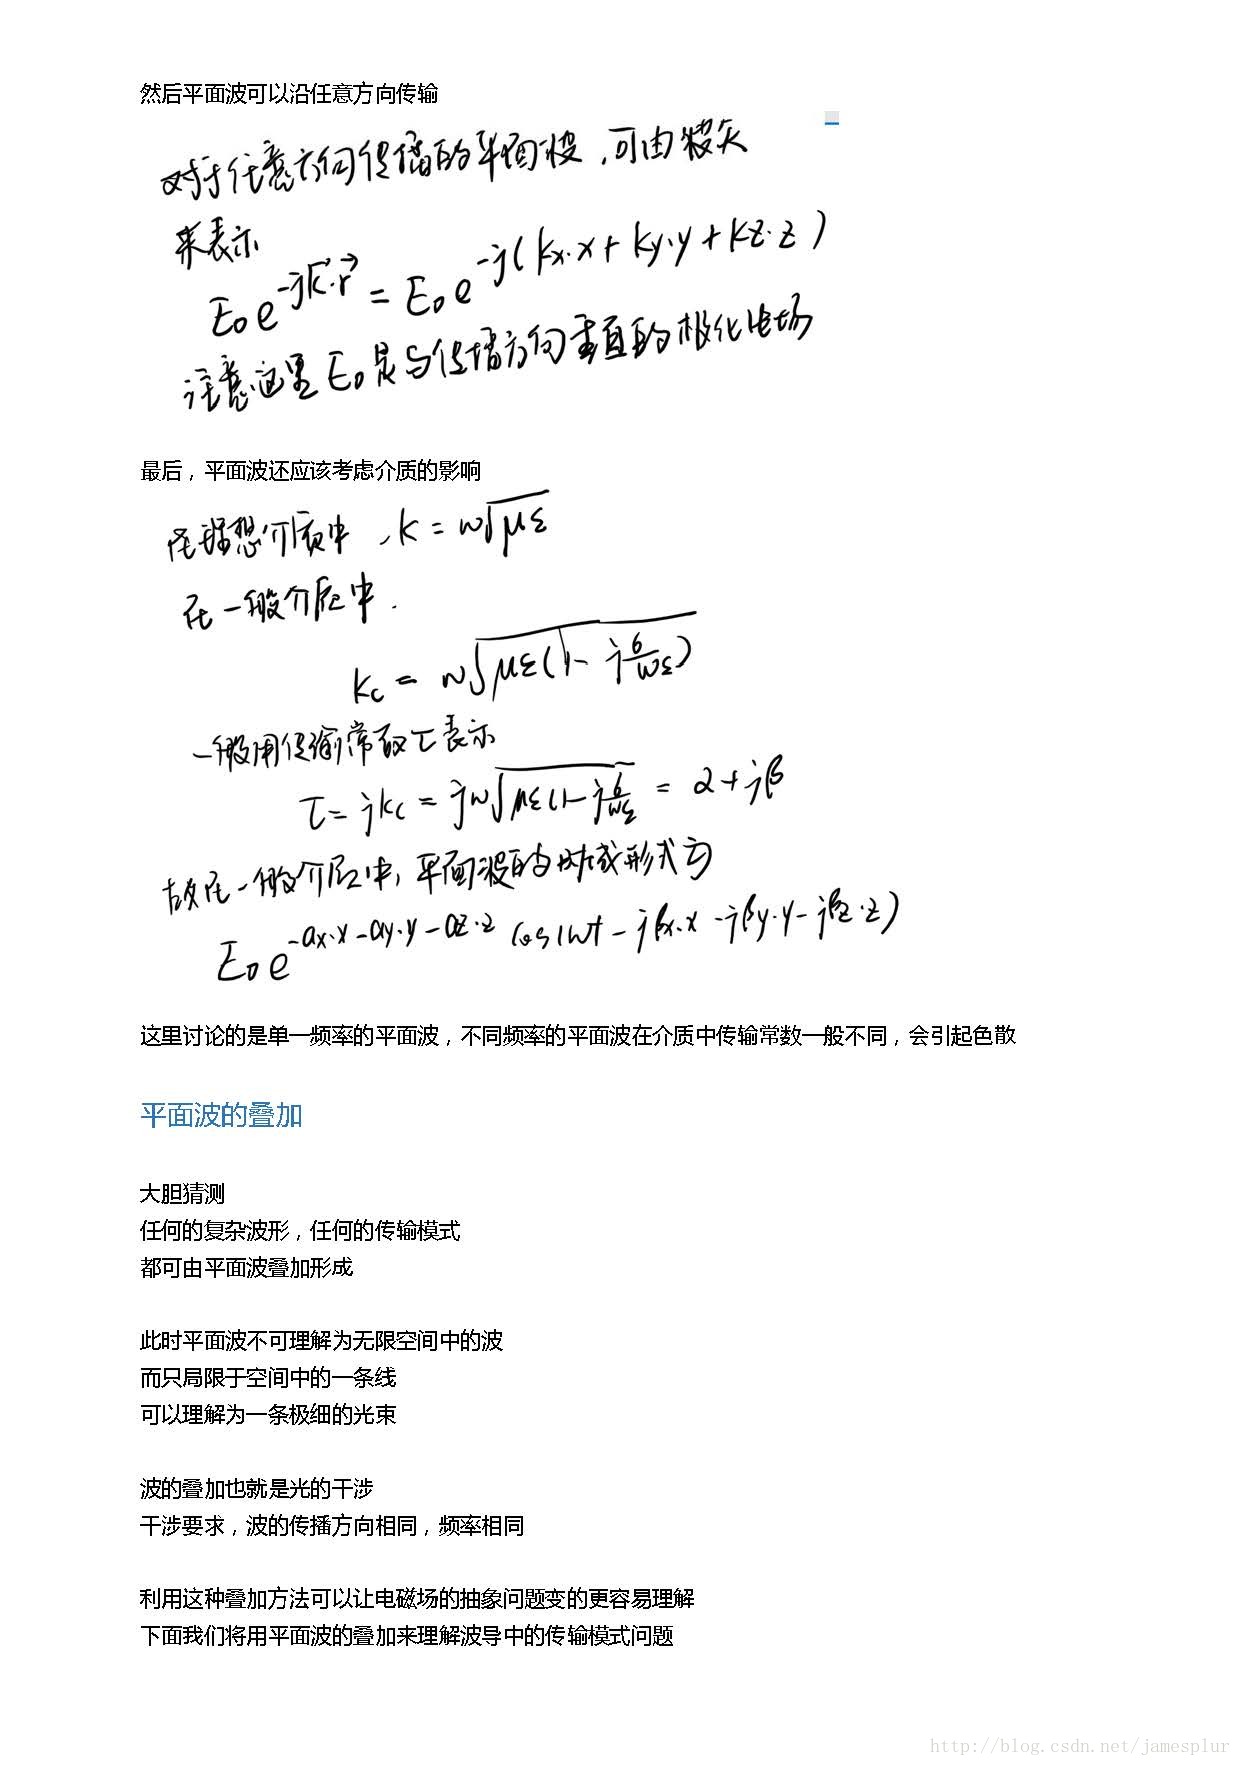 然后平面波可以沿任意方向传输
对于任意方向传播的平面波，可由波矢
来表示
E₀e^{-j\vec{k}·\vec{r}} = E₀e^{-j(kx·x+ky·y+kz·z)}
注意这里E₀是与传播方向垂直的极化电场
最后，平面波还应该考虑介质的影响
在理想介质中，k=w√με
在一般介质中.
kc = w√με(1-j\frac{σ}{wε})
一般用传输常数τ表示
τ=jkc=jw√με(1-j\frac{σ}{wε} = α+jβ
故在一般介质中，平面波的时域形式为
E₀e^{-αx·x-αy·y-αz·z} cos(wt-jβx·x-jβy·y-jβz·z)
这里讨论的是单一频率的平面波，不同频率的平面波在介质中传输常数一般不同，会引起色散
平面波的叠加
大胆猜测
任何的复杂波形，任何的传输模式
都可由平面波叠加形成
此时平面波不可理解为无限空间中的波
而只局限于空间中的一条线
可以理解为一条极细的光束
波的叠加也就是光的干涉
干涉要求，波的传播方向相同，频率相同
利用这种叠加方法可以让电磁场的抽象问题变的更容易理解
下面我们将用平面波的叠加来理解波导中的传输模式问题
http://blog.csdn.net/jamesplur